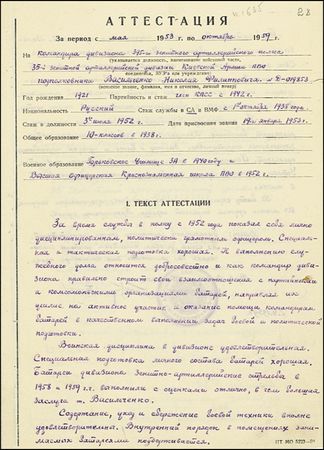 АТТЕСТАЦИЯ
За период с мая 1953 г. по октябрь 1959 г.
На командира дивизиона 715-го зенитного артиллерийского полка
(указывается должность, наименование войсковой части,
35-й зенитной артиллерийской дивизии Киевской Армии ПВО
соединения, ВУЗ'а или учреждения)
подполковника Василенко Николая Филипповича,
(воинское звание, фамилия, имя и отчество, личный номер)
Год рождения 1921 Партийность и стаж член КПСС с 1942 г.
Национальность Русский Стаж службы в СА и ВМФ с 1 октября 1938 года
Стаж в должности 3 июля 1952 г. Дата присвоения звания 19 января 1953 г.
Общее образование 10 классов в 1938 г.
Военное образование училище ЗА в 1940 году и
Высшая офицерская школа ПВО в 1952 г.
I. ТЕКСТ АТТЕСТАЦИИ
За время службы в полку с 1952 года показал себя лично
дисциплинированным, политически грамотным офицером. Специаль-
ная и тактическая подготовка хорошая. К выполнению слу-
жебного долга относится добросовестно и как командир диви-
зиона правильно строит свои взаимоотношения с партийными
и комсомольскими организациями батарей, направляя их
усилия на активное участие и оказание помощи командирам
батарей в качественном выполнении задач боевой и политической
подготовки.
Воинская дисциплина в дивизионе удовлетворительная.
Специальная подготовка личного состава батарей хорошая.
Батареи дивизиона зенитно-артиллерийские стрельбы в
1958 и 1959 г.г. выполнили с оценками отлично, в чем большая
заслуга т. Василенко.
Содержание, уход и сбережение боевой техники вполне
удовлетворительные. Внутренний порядок в помещениях зани-
маемых батареями поддерживается.